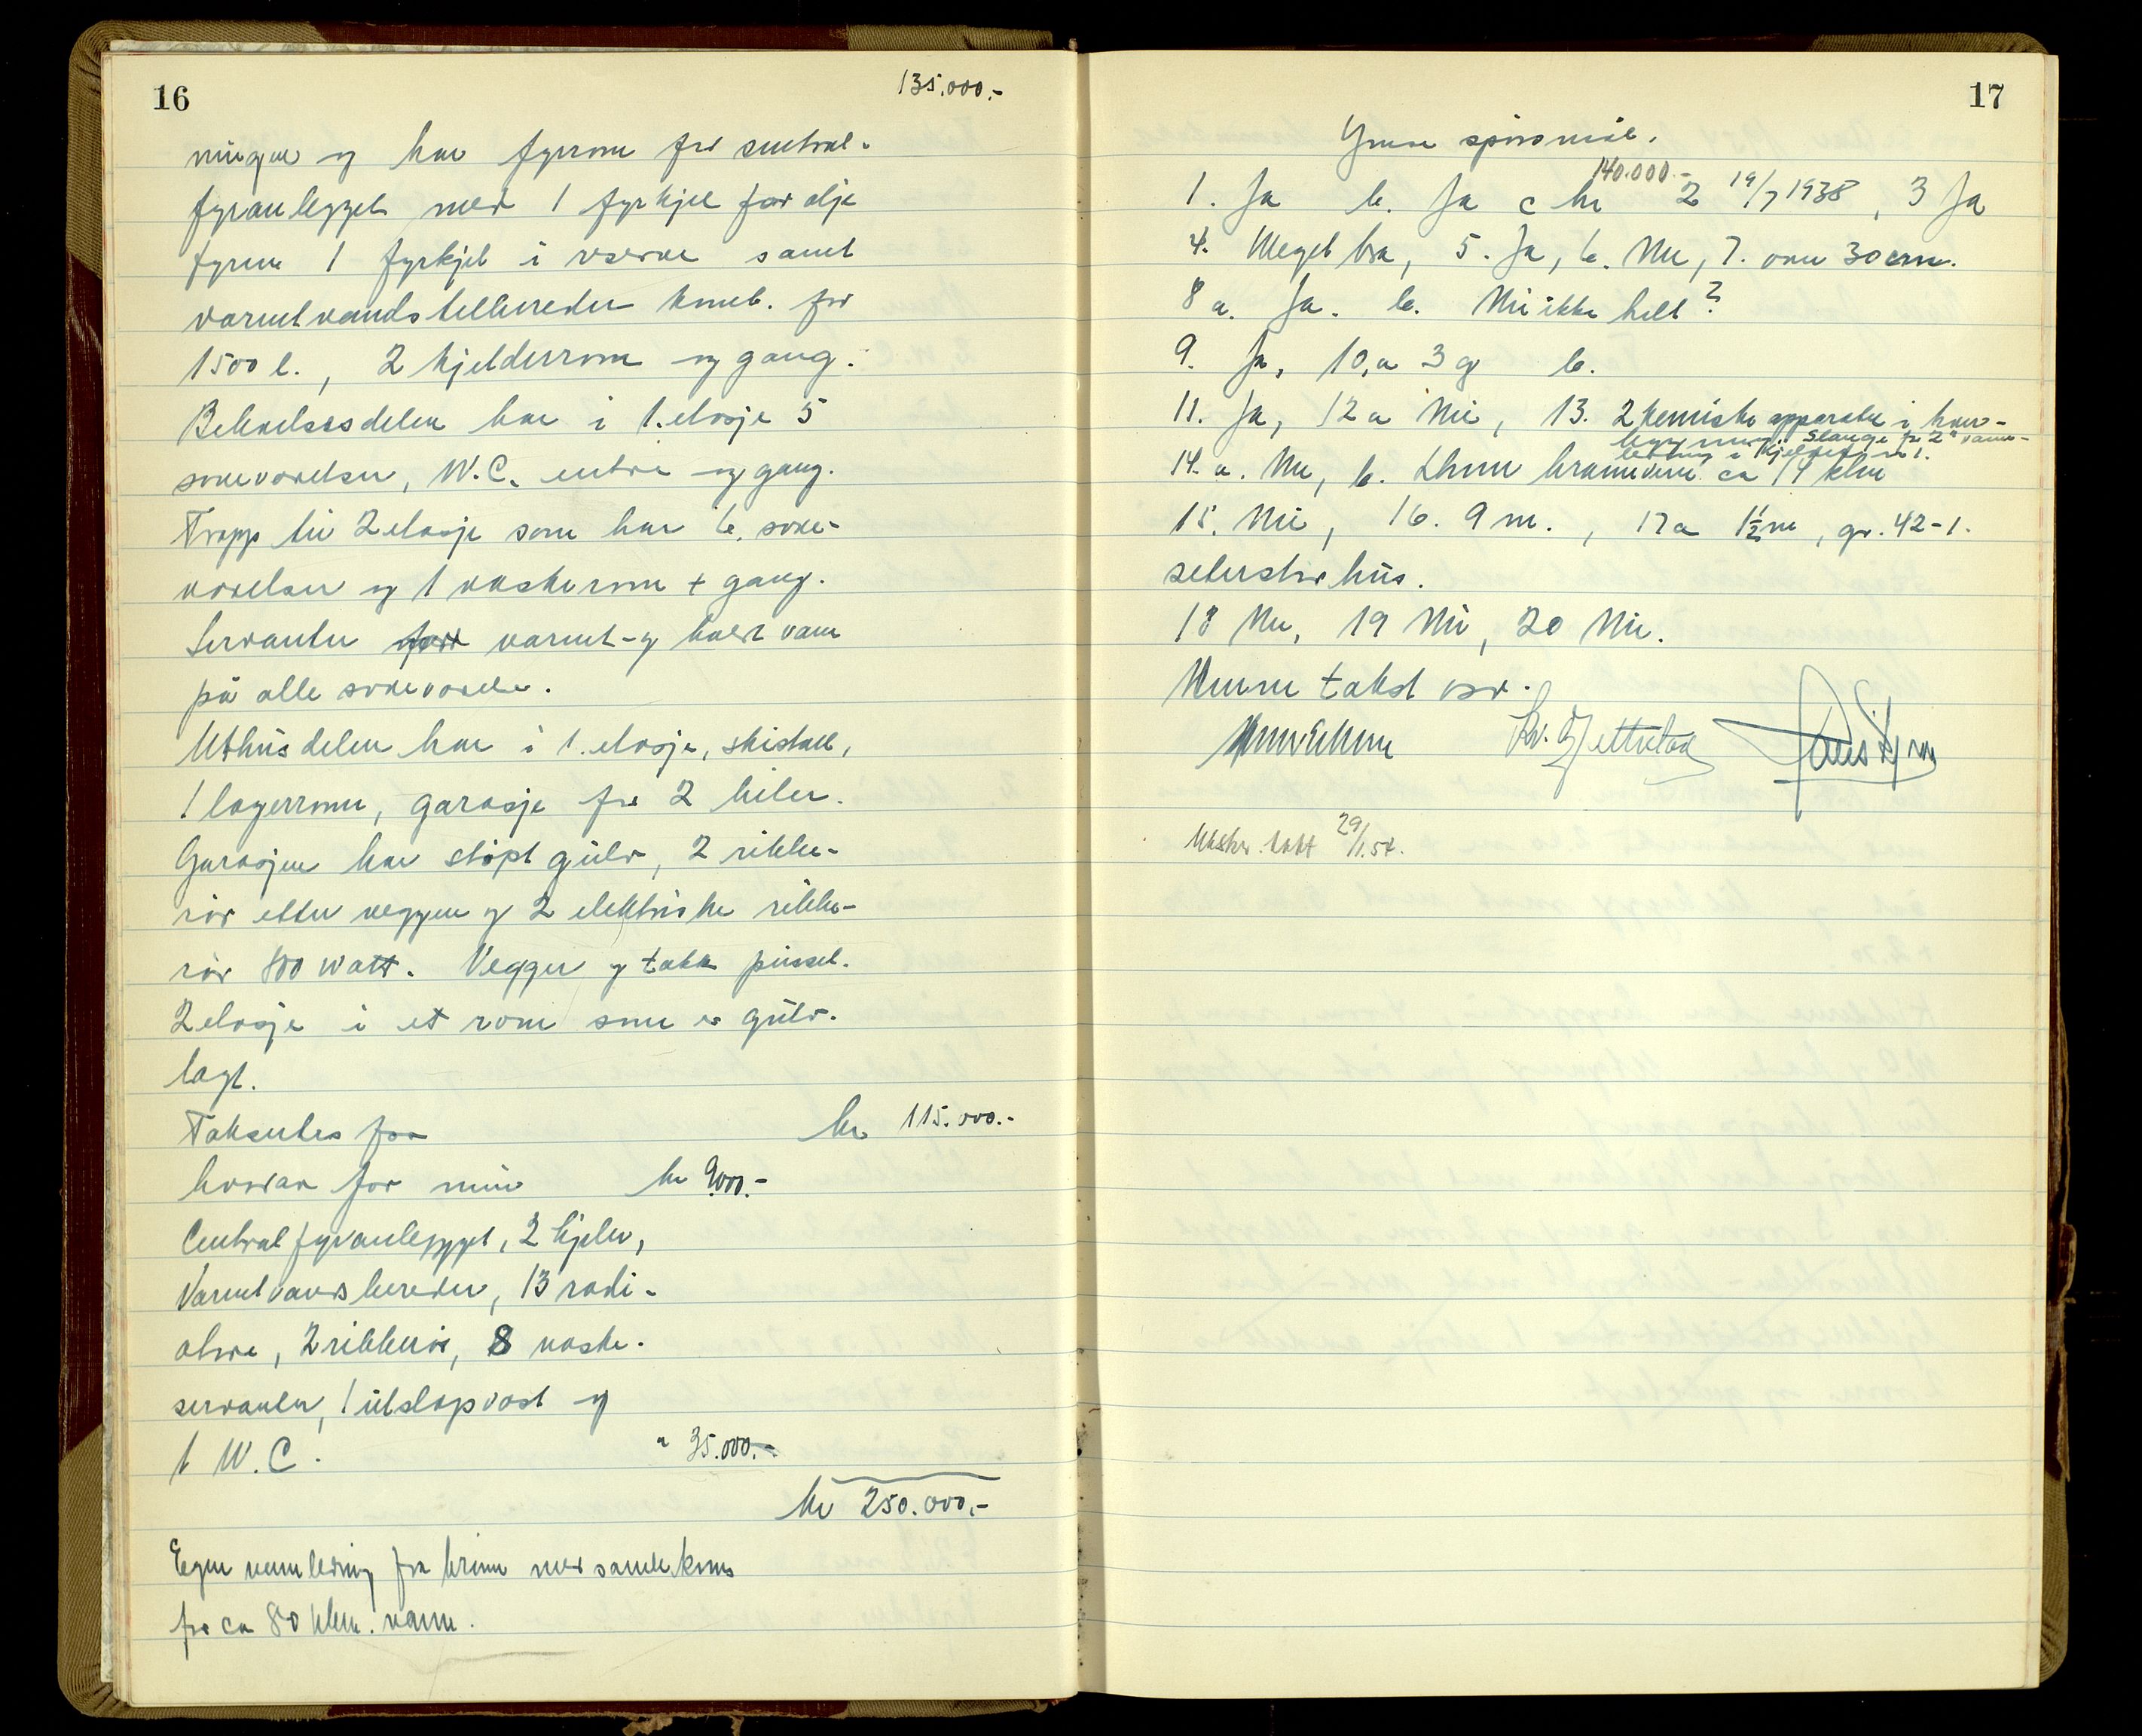 16
135.000.-
ningen og har fyrrom for sentral-
fyranlegget med 1 fyrkjel for olje
fyring 1 fyrkjel i reserve samt
varmtvands tillbereder komb. for
1500 l., 2 kjelderrom og gang.
Bekvelsesdelen har i 1. etasje 5
soveværelser, W.C. entre og gang.
Trapp til 2 etasje som har 6. sove-
værelser og 1 vaskerom + gang.
Servanter varmt- og kaldt vann
på alle soveværelser.
Uthusdelen har i 1. etasje, skistall,
1 lagerrom, garasje for 2 biler.
Garasjen har støpt gulv, 2 ribbe-
rør etter veggen og 2 elektriske ribbe-
rør 800 watt. Vegger og takk pusset.
2 etasje i et rom som er gulv-
lagt.
Takseres for kr 115.000.-
hvorav for mur kr 9000.-
Centralfyranlegget, 2 kjeler,
Varmtvansbereder, 13 radi-
atorer, 2 ribberør, 8 vaske-
servanter, 1 utslagsvask og
1 W.C. " 35.000.-
kr 250.000.-
Egen vannledning fra brønn med samlekum
for ca 80 kbm. vann.
17
Ymse spørsmål.
140.000.-
1. Ja b. Ja c kr 2 19/7 1938, 3 Ja
4. Meget bra, 5. Ja, 6. Nei, 7. over 30 cm.
8 a. Ja. b. Nei ikke helt?
9. Ja, 10, a 3 og b.
11. Ja, 12 a Nei, 13. 2 kemiske apparater i hver
bygning. Slange for 2" vann-
ledning i kjelderen i 1.
14. a. Nei, b. brannvern ca 14 klm
15. Nei, 16. 9 m., 17 a 1½ m, gr. 42-1.
seterstørhus.
18 Nei, 19 Nei, 20 Nei.
takst
29/1.54.